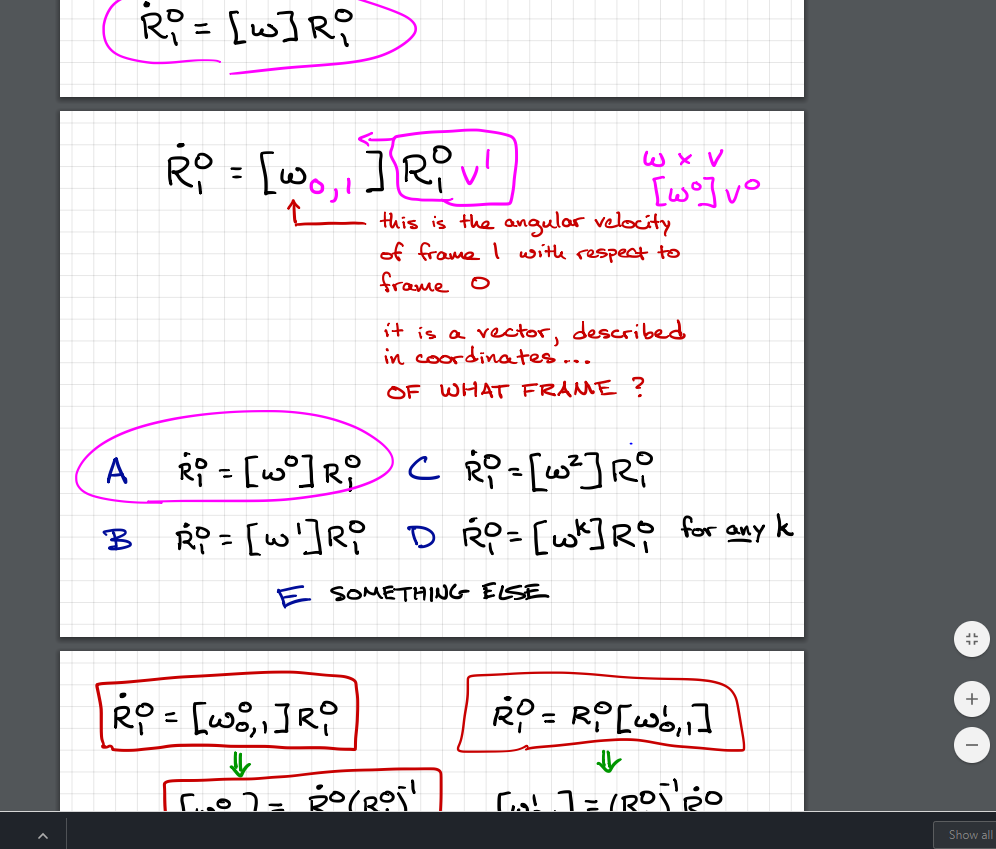 Ṙ₁⁰ = [ω] R₁⁰
Ṙ₁⁰ = [ω₀,₁] R₁⁰ v¹
ω × v
[ω⁰] v⁰
this is the angular velocity
of frame 1 with respect to
frame 0
it is a vector, described
in coordinates...
OF WHAT FRAME ?
A Ṙ₁⁰ = [ω⁰] R₁⁰
C Ṙ₁⁰ = [ω²] R₁⁰
B Ṙ₁⁰ = [ω¹] R₁⁰
D Ṙ₁⁰ = [ωᵏ] R₁⁰ for any k
E SOMETHING ELSE
Ṙ₁⁰ = [ω⁰₀,₁] R₁⁰
Ṙ₁⁰ = R₁⁰ [ω¹₀,₁]
Show all